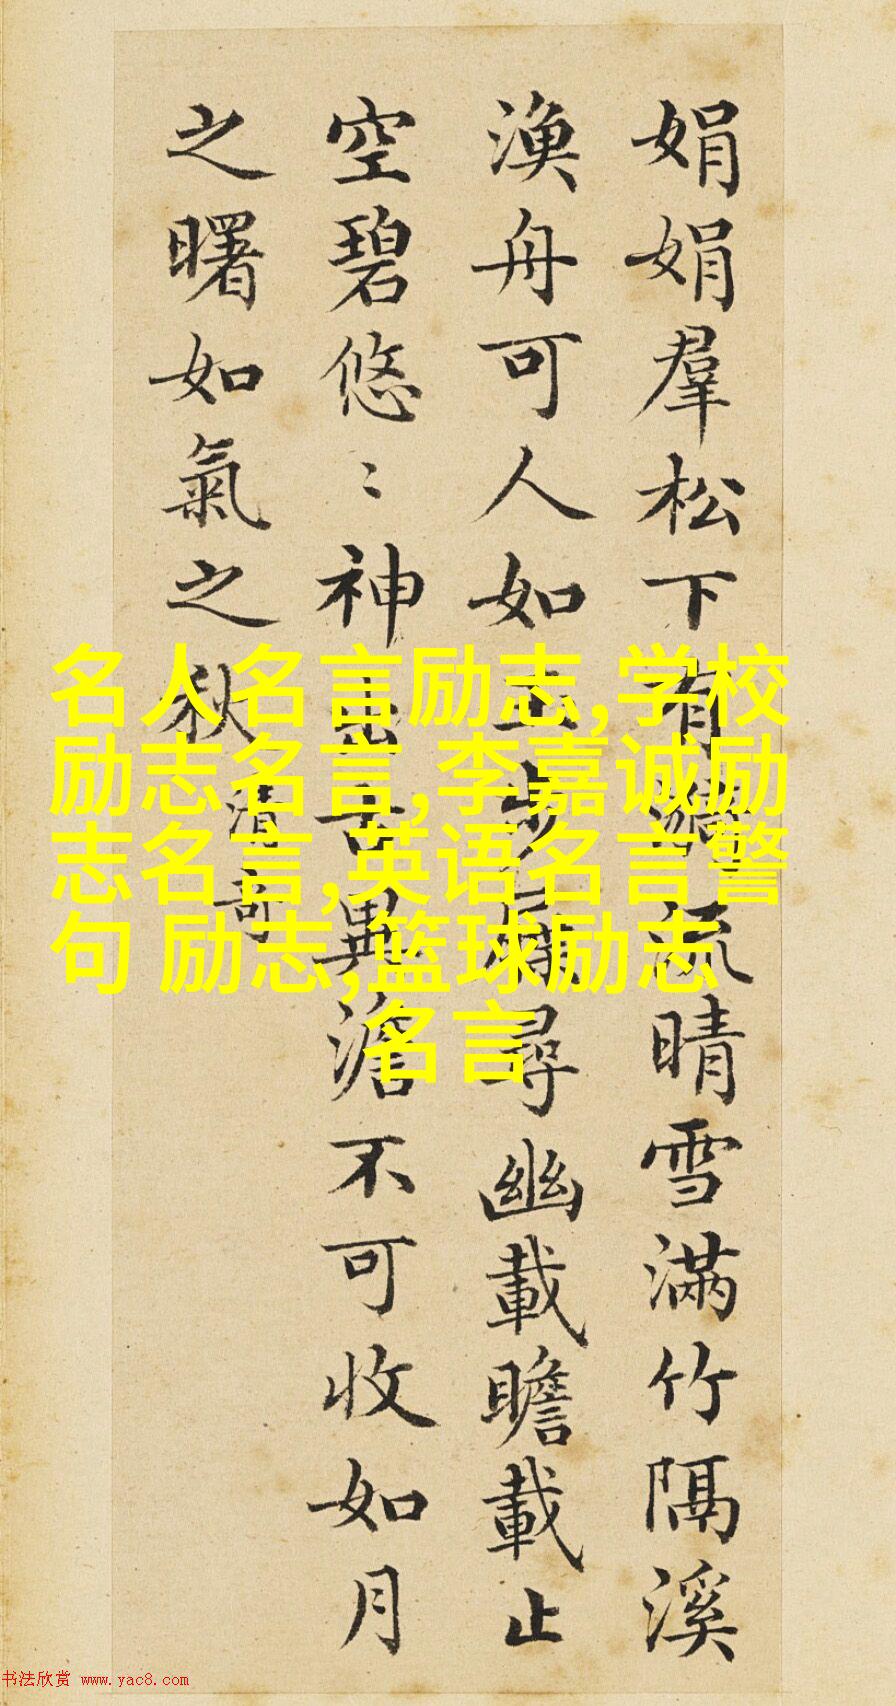 娟娟羣松下有流晴雪滿竹隔溪
漁舟可人如玉步尋幽載瞻載止
空碧悠〻神出古異澹不可收如月
之曙如氣之秋
清奇
名人名言励志,学校
励志名言,李嘉诚励
志名言,英语名言警
句 励志,篮球励志
名言
书法欣赏 www.yac8.com